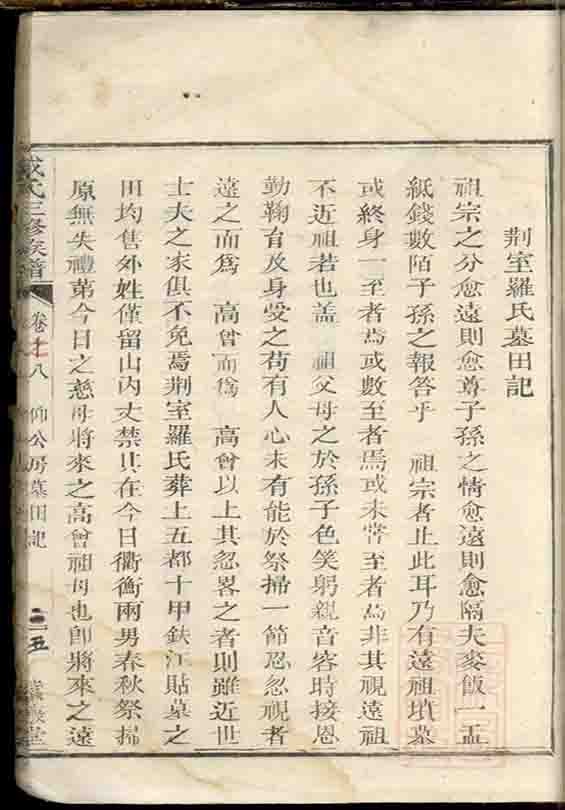 荆室羅氏墓田記
祖宗之分愈遠則愈尊子孫之情愈遠則愈隔夫麥飯一盂
紙錢數陌子孫之報答乎 祖宗者止此耳乃有遠祖墳墓
或終身一至者焉或數至者焉或未嘗至者焉非其視遠祖
不近祖若也盖 祖父母之於孫子色笑躬親音容時接恩
勤鞠育及身受之苟有人心未有能於祭掃一節忍忽視者
遠之而爲 高曾而爲 高曾以上其忽畧之者則雖近世
士夫之家俱不免焉荆室羅氏葬上五都十甲鈇江貼墓之
田均售外姓僅留山内丈禁其在今日衢衡兩男春秋祭掃
原無失禮第今日之慈母將來之高曾祖母也卽將來之遠
成氏三修族譜
卷 八 仰公房墓田記
三五